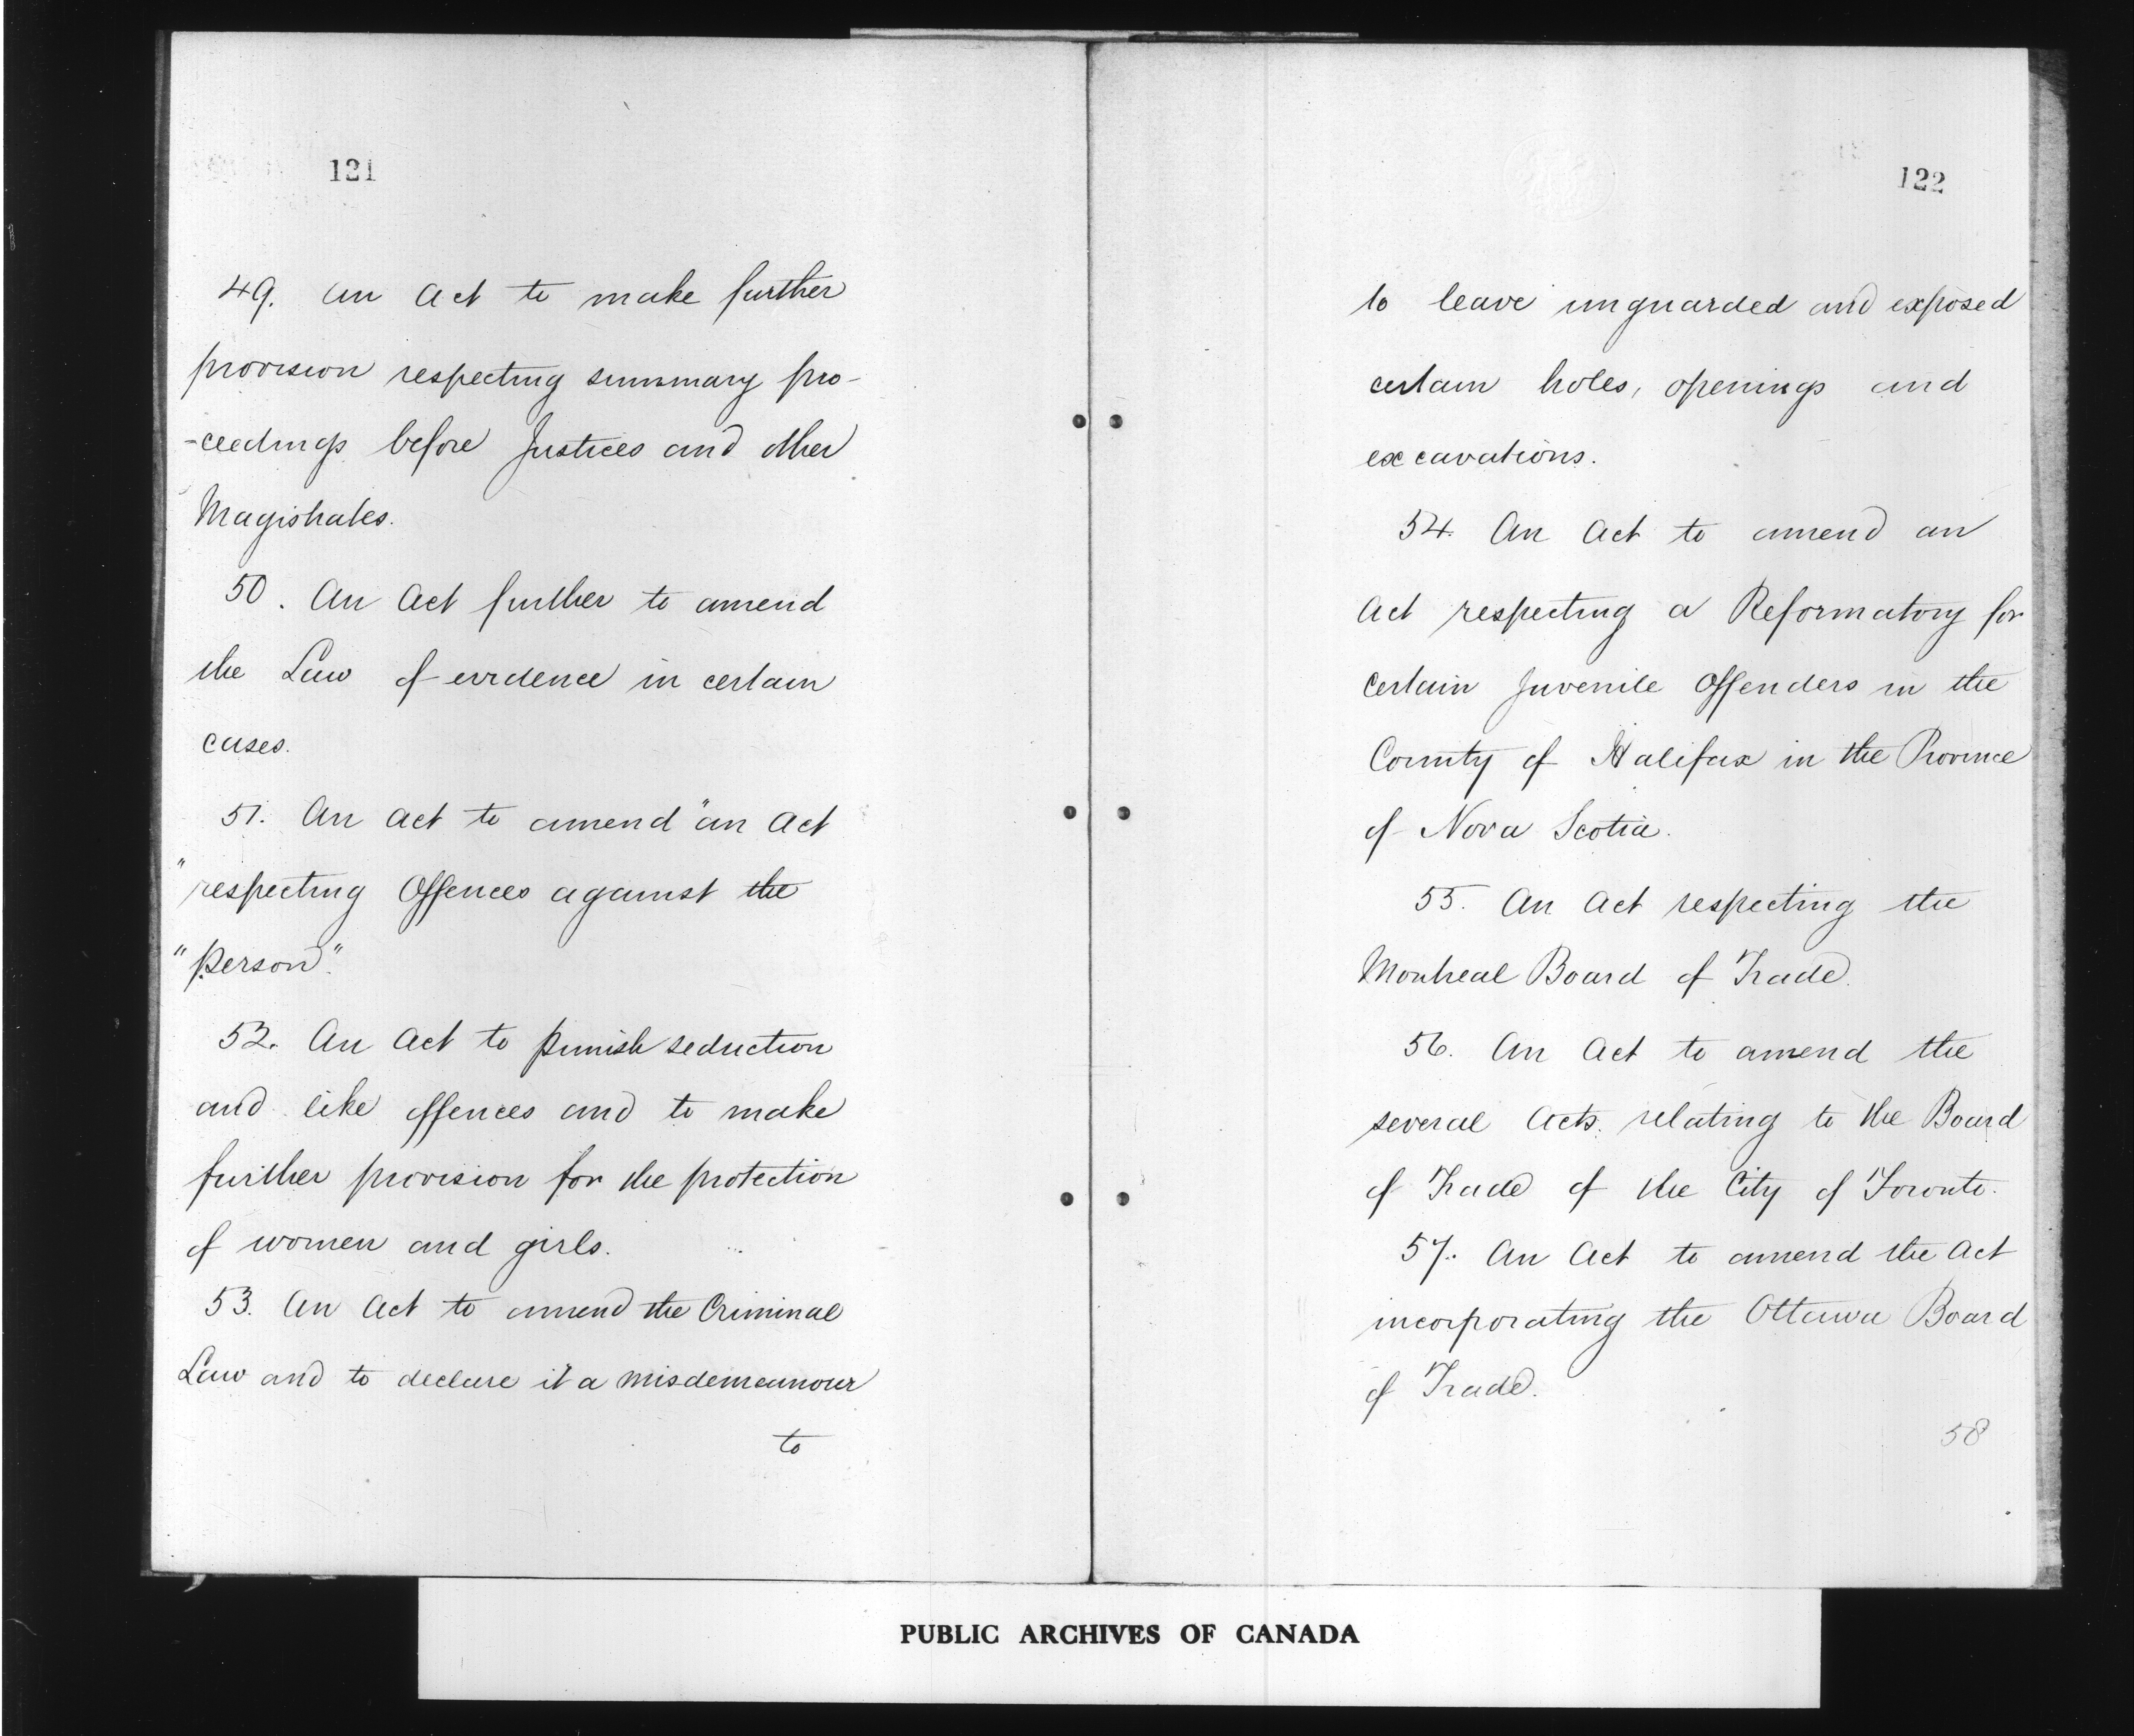 121
49. An Act to make further
provision respecting summary pro-
-ceedings before Justices and other
Magistrates.
50. An Act further to amend
the Law of evidence in certain
cases.
51. An Act to amend "an Act
"respecting Offences against the
"Person".
52. An Act to punish seduction
and like offences and to make
further provision for the protection
of women and girls.
53. An Act to amend the Criminal
Law and to declare it a misdemeanour
to
122
to leave unguarded and exposed
certain holes, openings and
excavations.
54. An Act to amend an
Act respecting a Reformatory for
certain Juvenile Offenders in the
County of Halifax in the Province
of Nova Scotia.
55. An Act respecting the
Montreal Board of Trade.
56. An Act to amend the
several Acts relating to the Board
of Trade of the City of Toronto.
57. An Act to amend the Act
incorporating the Ottawa Board
of Trade.
58
PUBLIC ARCHIVES OF CANADA